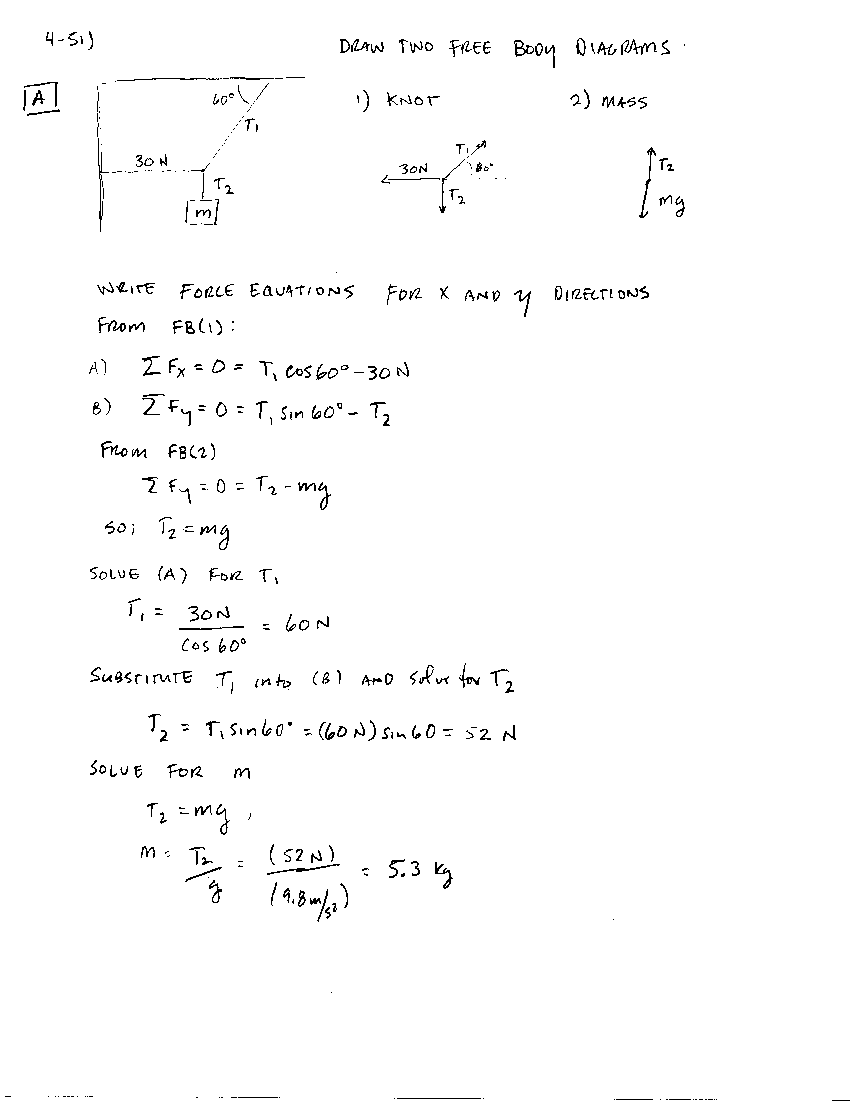 4-51)
DRAW TWO FREE BODY DIAGRAMS.
A
60°
T₁
30 N
T₂
m
1) KNOT
T₁
30N
60°
T₂
2) MASS
T₂
mg
WRITE FORCE EQUATIONS FOR X AND y DIRECTIONS
From FB(1):
A) ΣFx = 0 = T₁ cos60° - 30 N
B) ΣFy = 0 = T₁ sin 60° - T₂
From FB(2)
ΣFy = 0 = T₂ - mg
SO; T₂ = mg
SOLVE (A) FOR T₁
T₁ = 30N / cos 60° = 60 N
SUBSTITUTE T₁ into (B) AND solve for T₂
T₂ = T₁ sin60° = (60 N) sin 60 = 52 N
SOLVE FOR m
T₂ = mg,
m = T₂/g = (52 N) / (9.8 m/s²) = 5.3 kg